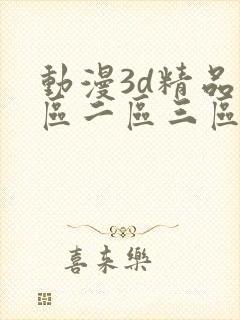 動漫3d精品
區二區三區
喜来樂